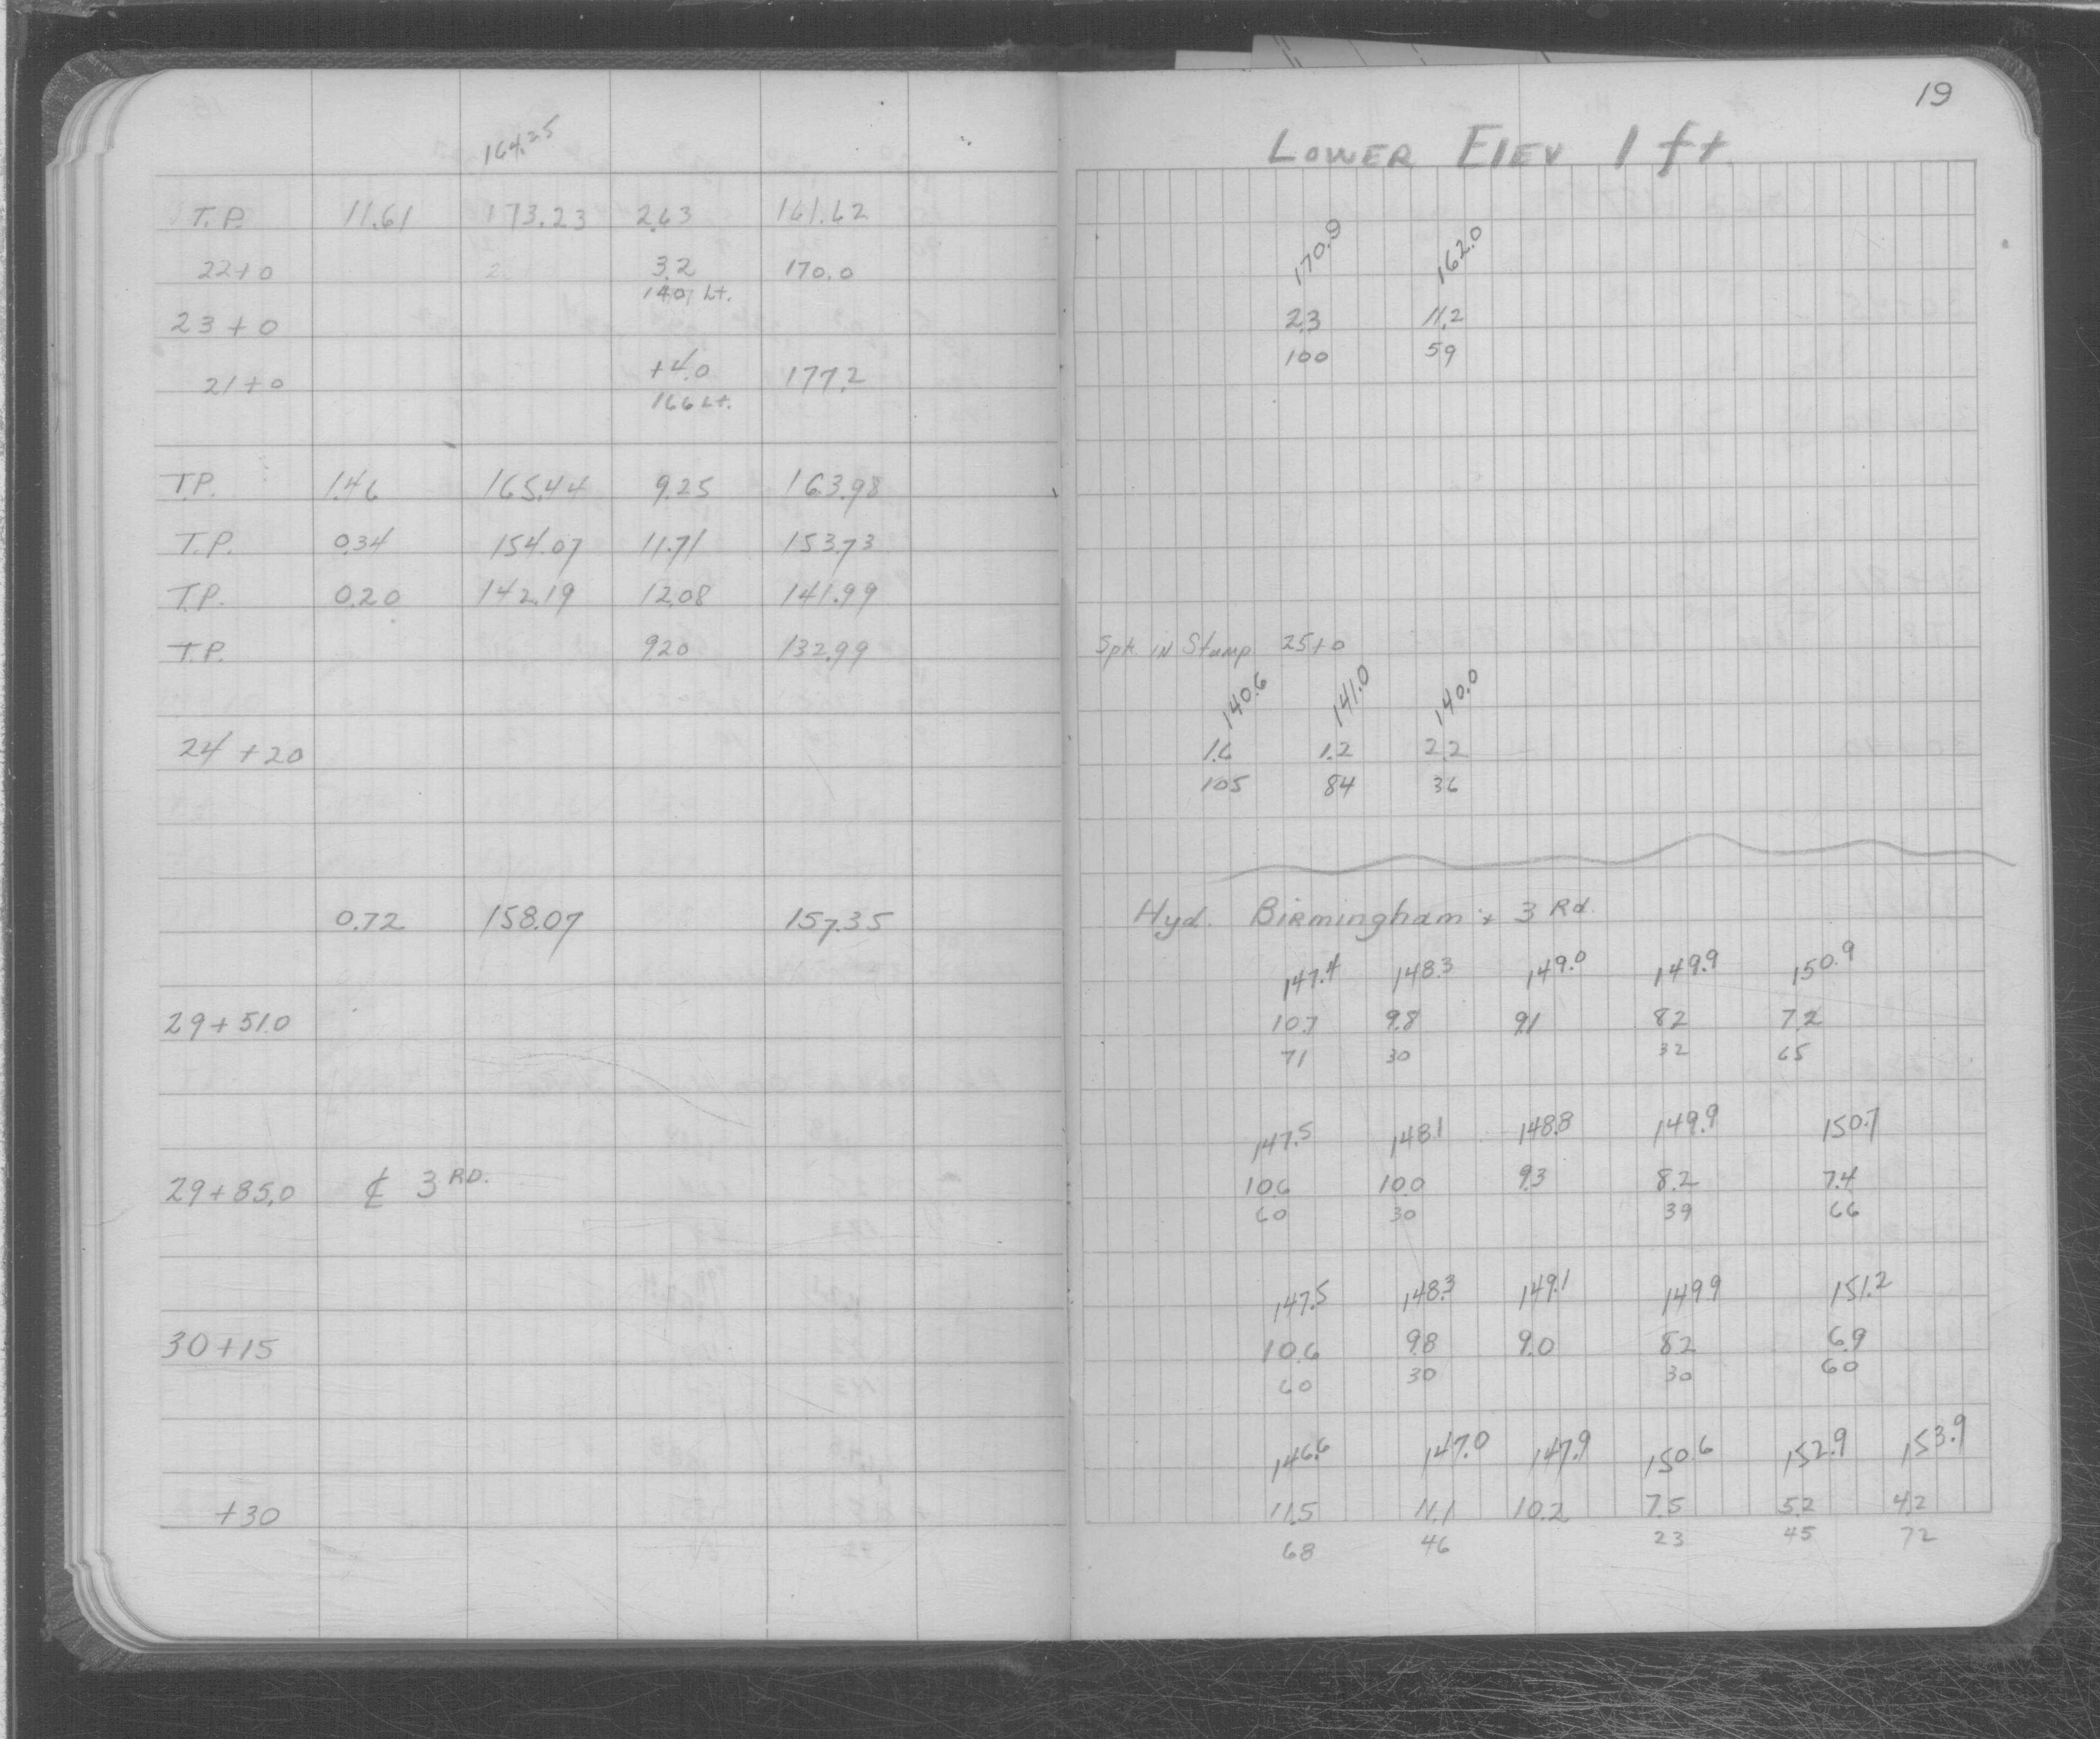 19
164.25
LOWER ELEV 1 ft.
T.P. 11.61 173.23 2.63 161.62
170.9 162.0
22+0 3.2 170.0
140, Lt.
23+0 2.3 11.2
100 59
21+0 +4.0 177.2
166 Lt.
T.P. 1.46 165.44 9.25 163.98
T.P. 0.34 154.07 11.71 153.73
T.P. 0.20 142.19 12.08 141.99
T.P. 9.20 132.99 Spk. IN Stump 25+0
140.6 141.0 140.0
24+20 1.6 1.2 2.2
105 84 36
0.72 158.07 157.35 Hyd. Birmingham & 3 Rd.
147.4 148.3 149.0 149.9 150.9
29+51.0 10.7 9.8 9.1 8.2 7.2
71 30 32 65
147.5 148.1 148.8 149.9 150.7
29+85.0 ℄ 3 RD. 10.6 10.0 9.3 8.2 7.4
60 30 39 66
147.5 148.3 149.1 149.9 151.2
30+15 10.6 9.8 9.0 8.2 6.9
60 30 30 60
146.6 147.0 147.9 150.6 152.9 153.9
+30 11.5 11.1 10.2 7.5 5.2 4.2
68 46 23 45 72